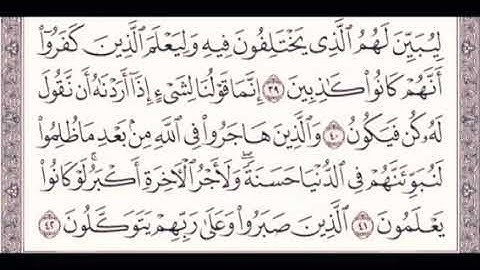 لِيُبَيِّنَ لَهُمُ ٱلَّذِي يَخْتَلِفُونَ فِيهِ وَلِيَعْلَمَ ٱلَّذِينَ كَفَرُوٓا۟
أَنَّهُمْ كَانُوا۟ كَٰذِبِينَ ٣٩ إِنَّمَا قَوْلُنَا لِشَىْءٍ إِذَآ أَرَدْنَٰهُ أَن نَّقُولَ
لَهُۥ كُن فَيَكُونُ ٤٠ وَٱلَّذِينَ هَاجَرُوا۟ فِى ٱللَّهِ مِنۢ بَعْدِ مَا ظُلِمُوا۟
لَنُبَوِّئَنَّهُمْ فِى ٱلدُّنْيَا حَسَنَةًۖ وَلَأَجْرُ ٱلْءَاخِرَةِ أَكْبَرُۚ لَوْ كَانُوا۟
يَعْلَمُونَ ٤١ ٱلَّذِينَ صَبَرُوا۟ وَعَلَىٰ رَبِّهِمْ يَتَوَكَّلُونَ ٤٢